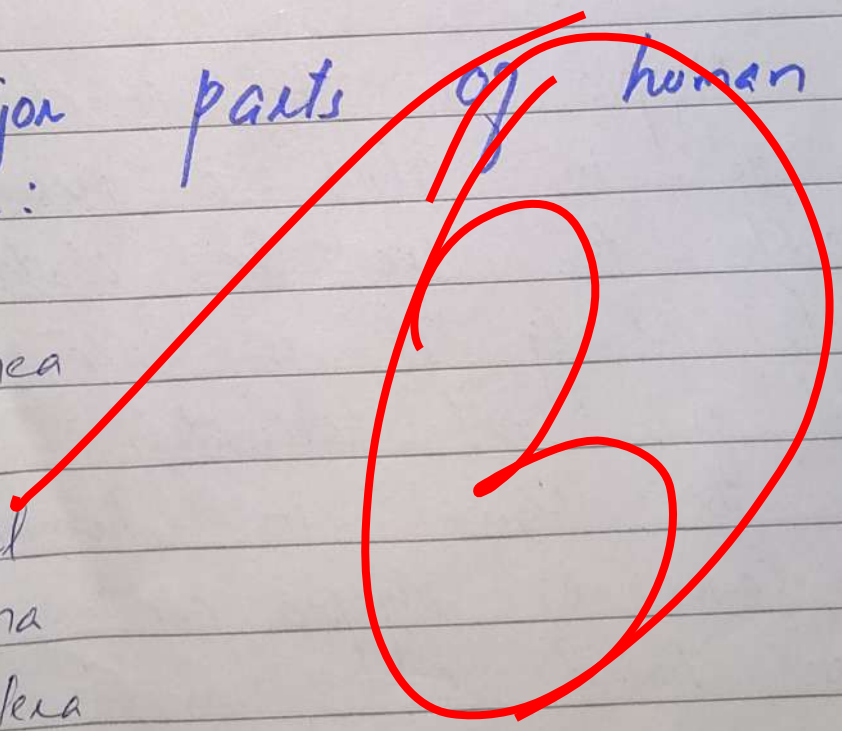 jor parts of human
:
nea
l
na
lera
3